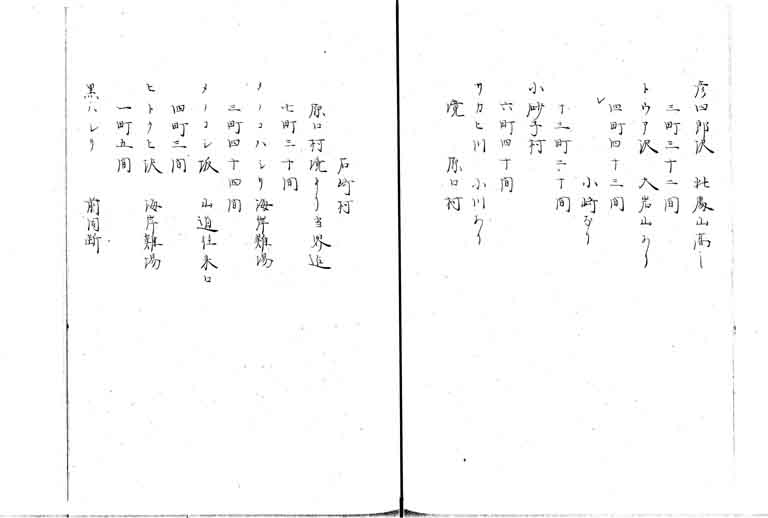 彦四郎沢 此処山高し
三町三十二間
トウフ沢 大岩山あり
四町四十三間
小崎あり
十三町二十間
小砂子村
六町四十間
サカヒ川 小川あり
境 原口村
石崎村
原口村境より当界迄
七町三十間
メノコハシリ 海岸難場
三町四十四間
メノコシ坂 山道往来口
四町三間
ヒトクヒ沢 海岸難場
一町五間
黒ハシリ 前同断